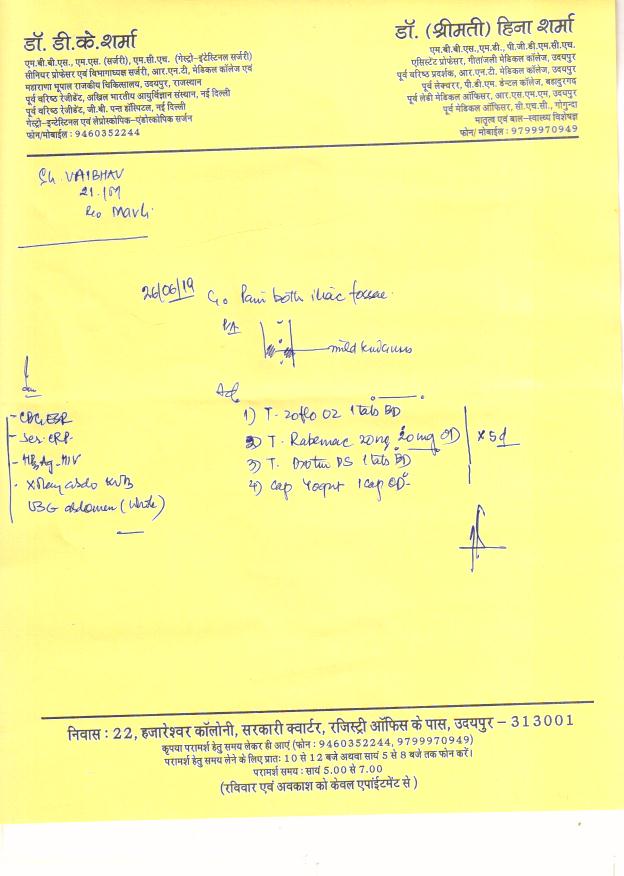 डॉ. डी.के.शर्मा
एम.बी.बी.एस., एम.एस. (सर्जरी), एम.सी.एच. (गेस्ट्रो-इंटेस्टिनल सर्जरी)
सीनियर प्रोफेसर एवं विभागाध्यक्ष सर्जरी, आर.एन.टी. मेडिकल कॉलेज एवं
महाराणा भूपाल राजकीय चिकित्सालय, उदयपुर, राजस्थान
पूर्व वरिष्ठ रेजीडेंट, अखिल भारतीय आयुर्विज्ञान संस्थान, नई दिल्ली
पूर्व वरिष्ठ रेजीडेंट, जी.बी. पन्त हॉस्पिटल, नई दिल्ली
गेस्ट्रो-इन्टेस्टिनल एवं लेप्रोस्कोपिक-एंडोस्कोपिक सर्जन
फोन/मोबाईल : 9460352244
डॉ. (श्रीमती) हिना शर्मा
एम.बी.बी.एस.,एम.डी., पी.जी.डी.एम.सी.एच.
एसिस्टेंट प्रोफेसर, गीतांजली मेडिकल कॉलेज, उदयपुर
पूर्व वरिष्ठ प्रदर्शक, आर.एन.टी. मेडिकल कॉलेज, उदयपुर
पूर्व लेक्चरर, पी.डी.एम. डेन्टल कॉलेज, बहादुरगढ़
पूर्व लेडी मेडिकल ऑफिसर, आर.एस.एम.एम, उदयपुर
पूर्व मेडिकल ऑफिसर, सी.एच.सी., गोगुन्दा
मातृत्व एवं बाल-स्वास्थ्य विशेषज्ञ
फोन/ मोबाईल : 9799970949
Sh. VAIBHAV
21 /M
R/o Mavli
26/06/19 C/o Pain both iliac fossae.
P/A
mild
Adv
- CBC, ESR
- Ser. CRP
- HBsAg - HIV
- XRay abdo KUB
USG abdomen (Whole)
1) T. Zoflo OZ 1 tab BD
2) T. Rabemac 20mg 20mg OD
3) T. DS 1 tab BD
4) Cap Yogut 1 cap OD
x 5d
निवास : 22, हजारेश्वर कॉलोनी, सरकारी क्वार्टर, रजिस्ट्री ऑफिस के पास, उदयपुर – 313001
कृपया परामर्श हेतु समय लेकर ही आएं (फोन : 9460352244, 9799970949)
परामर्श हेतु समय लेने के लिए प्रातः 10 से 12 बजे अथवा सायं 5 से 8 बजे तक फोन करें।
परामर्श समय : सायं 5.00 से 7.00
(रविवार एवं अवकाश को केवल एपांईटमेंट से )